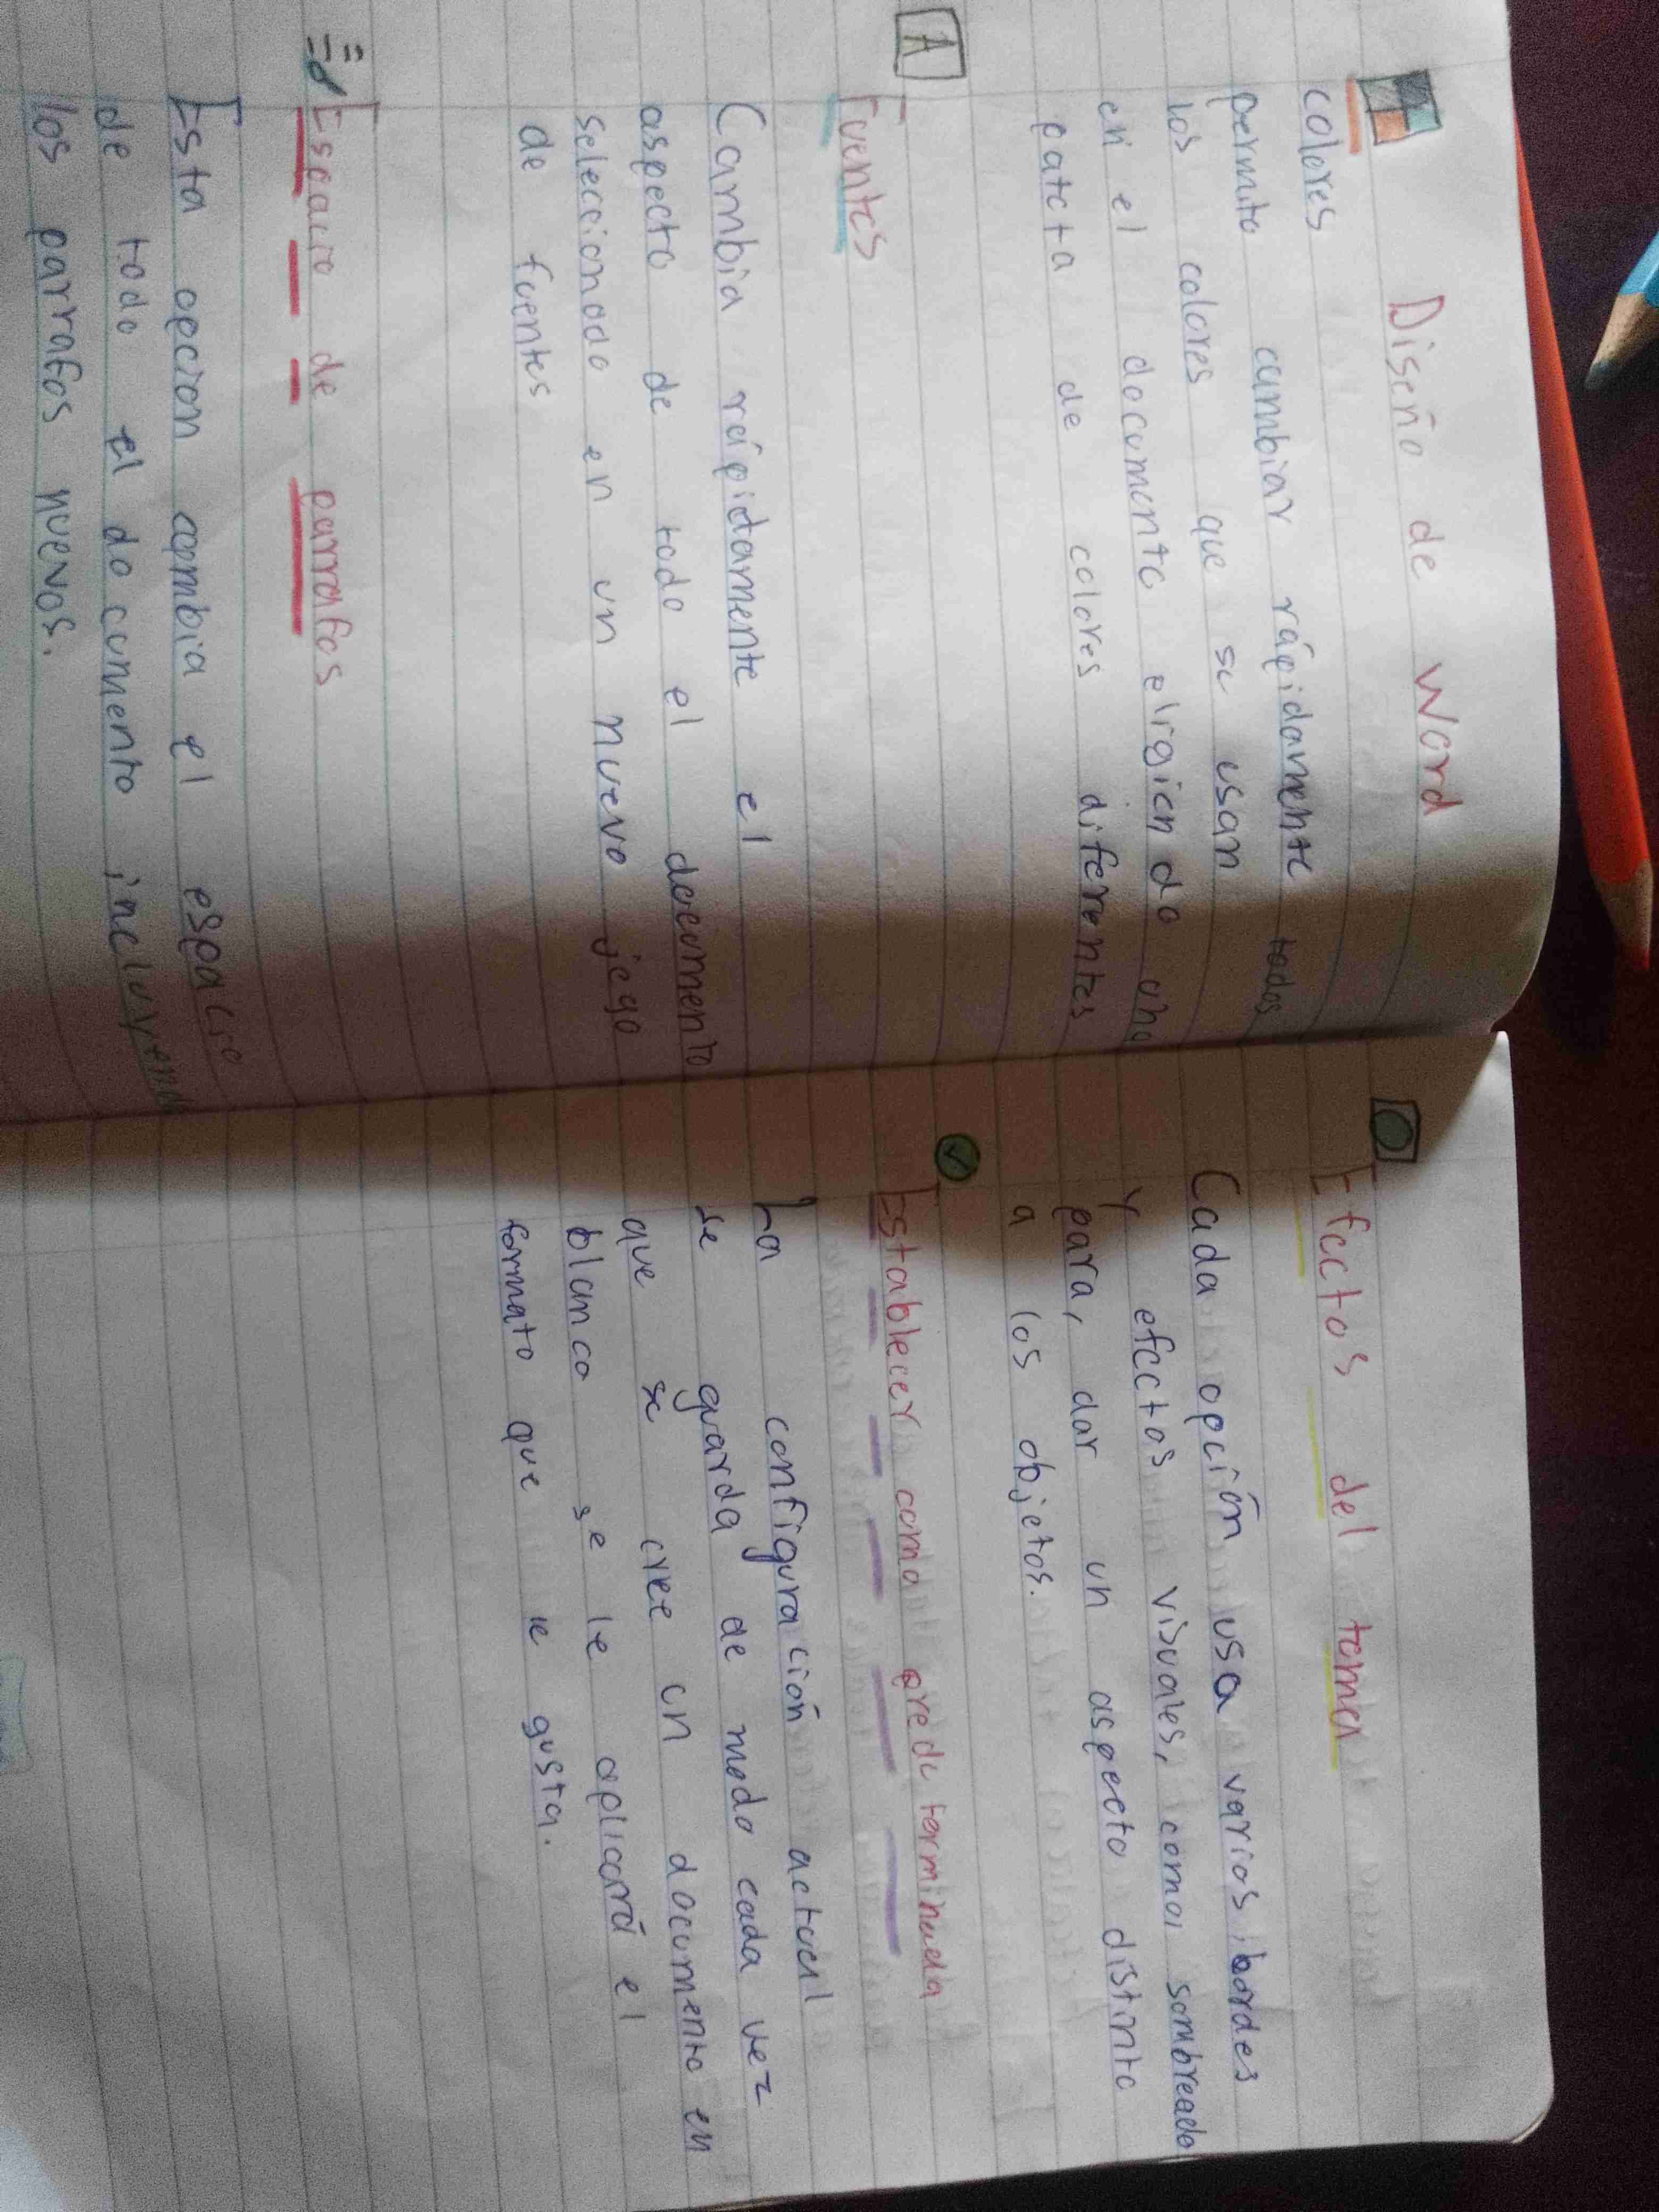 Diseño de Word
colores
permite cambiar rápidamente todos
los colores que se usan
en el documento eligiendo una
pateta de colores diferentes
A
Fuentes
Cambia rápidamente el
aspecto de todo el documento
seleccionado en un nuevo jego
de fuentes
Espacio de parrafos
Esta opcion cambia el espacio
de todo el documento incluyendo
los parrafos nuevos.
Efectos del toma
Cada opción usa varios bordes
Y efectos visuales, como sombreado
para, dar un aspecto distinto
a los objetos.
Establecer como predeterminada
La configuración actual
se guarda de modo cada vez
que se cree un documento en
blanco se le aplicará el
formato que le gusta.